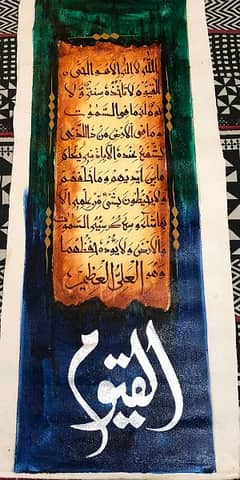 الله لا اله الا هو الحى
القيوم لا تاخذه سنة ولا
نوم له ما فى السموت
وما فى الارض من ذا الذى
يشفع عنده الا باذنه يعلم
ما بين ايديهم وما خلفهم
ولا يحيطون بشئ من علمه الا
بما شاء وسع كرسيه السموت
والارض ولا يوده حفظهما
وهو العلى العظيم
القيوم